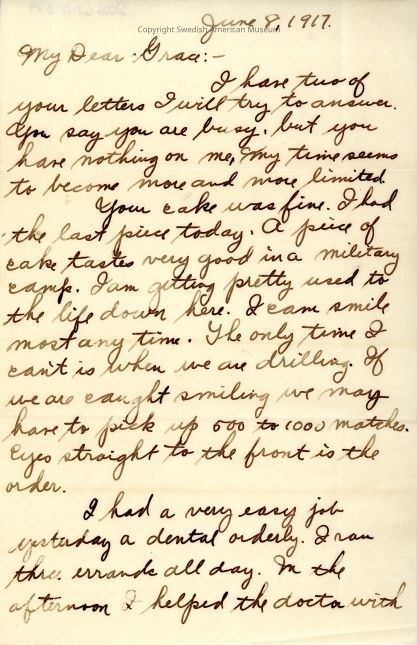 June 8, 1917.
Copyright Swedish American Museum
My Dear Grace:-
I have two of
your letters I will try to answer.
You say you are busy, but you
have nothing on me, My time seems
to become more and more limited.
Your cake was fine. I had
the last piece today. A piece of
cake tastes very good in a military
camp. I am getting pretty used to
the life down here. I can smile
most any time. The only time I
can't is when we are drilling. If
we are caught smiling we may
have to pick up 500 to 1000 matches.
Eyes straight to the front is the
order.
I had a very easy job
yesterday a dental orderly. I ran
three errands all day. In the
afternoon I helped the doctor with